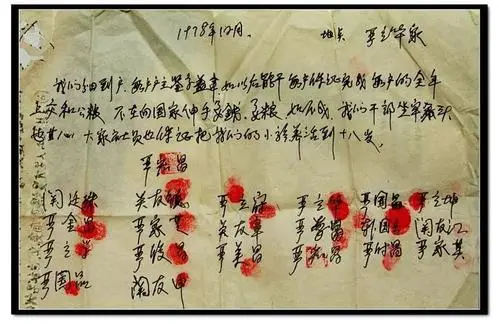 1978年12月. 地点 严立华家
我们分田到户，每户户主签字盖章，如以后能干，每户保证完成每户的全年
上交和公粮，不在向国家伸手要钱，要粮，如不成，我们干部坐牢杀头
也甘心，大家社员也保证把我们的小孩养活到十八岁，
严宏昌
关廷珠 关友德 严立符 严立华 严国昌 严立坤
严金昌 严家芝 关友章 严学昌 韩国云 关友江
严立学 严俊昌 严美昌 严付昌 严家其
严国品 关友申